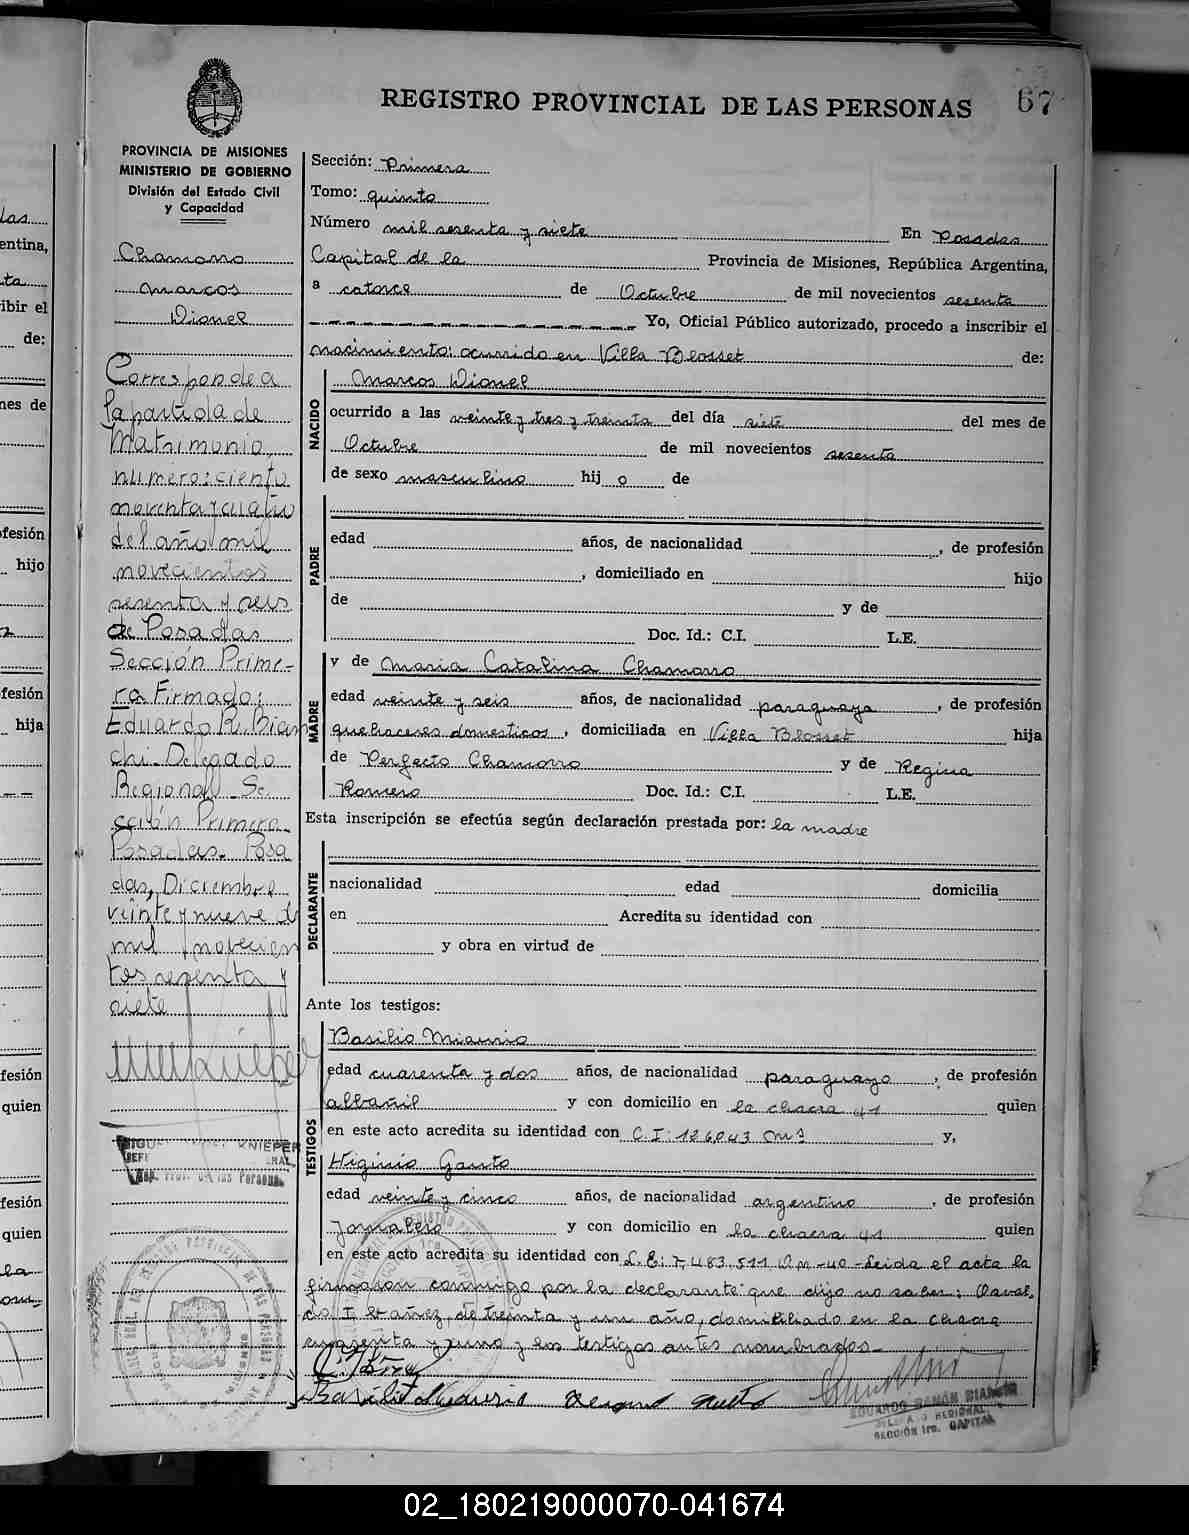 REGISTRO PROVINCIAL DE LAS PERSONAS
67
PROVINCIA DE MISIONES
MINISTERIO DE GOBIERNO
División del Estado Civil
y Capacidad
Chamorro
Marcos
Dionel
Corresponde a
la partida de
Matrimonio,
numero: ciento
noventa y cuatro
del año mil
novecientos
sesenta y seis
de Posadas
Sección Prime-
ra Firmado:
Eduardo R. Bian
chi. Delegado
Regional Se
cción Primera
Posadas. Posa
das, Diciembre
veinte y nueve d
mil novecien
tos sesenta y
siete
KNIEPER
Sección: Primera
Tomo: quinto
Número mil sesenta y siete En Posadas
Capital de la Provincia de Misiones, República Argentina,
a catorce de Octubre de mil novecientos sesenta
Yo, Oficial Público autorizado, procedo a inscribir el
nacimiento: ocurrido en Villa Blosset de:
NACIDO
Marcos Dionel
ocurrido a las veinte y tres y treinta del día siete del mes de
Octubre de mil novecientos sesenta
de sexo masculino hij o de
PADRE
edad años, de nacionalidad , de profesión
, domiciliado en hijo
de y de
Doc. Id.: C.I. L.E.
MADRE
y de Maria Catalina Chamorro
edad veinte y seis años, de nacionalidad paraguaya , de profesión
quehaceres domesticos , domiciliada en Villa Blosset hija
de Perfecto Chamorro y de Regina
Romero Doc. Id.: C.I. L.E.
Esta inscripción se efectúa según declaración prestada por: la madre
DECLARANTE
nacionalidad edad domicilia
en Acredita su identidad con
y obra en virtud de
Ante los testigos:
TESTIGOS
Basilio
edad cuarenta y dos años, de nacionalidad paraguayo , de profesión
albañil y con domicilio en la chacra 41 quien
en este acto acredita su identidad con C.I: 126043 y,
Higinio Gauto
edad veinte y cinco años, de nacionalidad argentino , de profesión
Jornalero y con domicilio en la chacra 41 quien
en este acto acredita su identidad con L.E: 7,483,511 D.M-40-Leida el acta la
firmaron conmigo por la declarante que dijo no saber:
de treinta y un año, domiciliado en la chacra
cuarenta y uno y los testigos antes nombrados-
EDUARDO RAMÓN BIANCHI
DELEGADO REGIONAL
SECCIÓN 1ra. CAPITAL
02_180219000070-041674